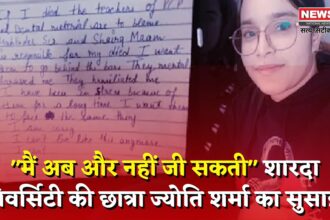 If I died the teachers of PCP
and Dental material are to blame
Mahinder Sir and Shairg Maam
is responsible for my died I want
them to go behind the bars They mental
harassed me They humiliated me
I have been in stress because of
them for a long time I want them
to face the same thing
I am sorry
I can't do like this anymore
NEWS
सत्य
"मैं अब और नहीं जी सकती" शारदा
यूनिवर्सिटी की छात्रा ज्योति शर्मा का सुसाइ